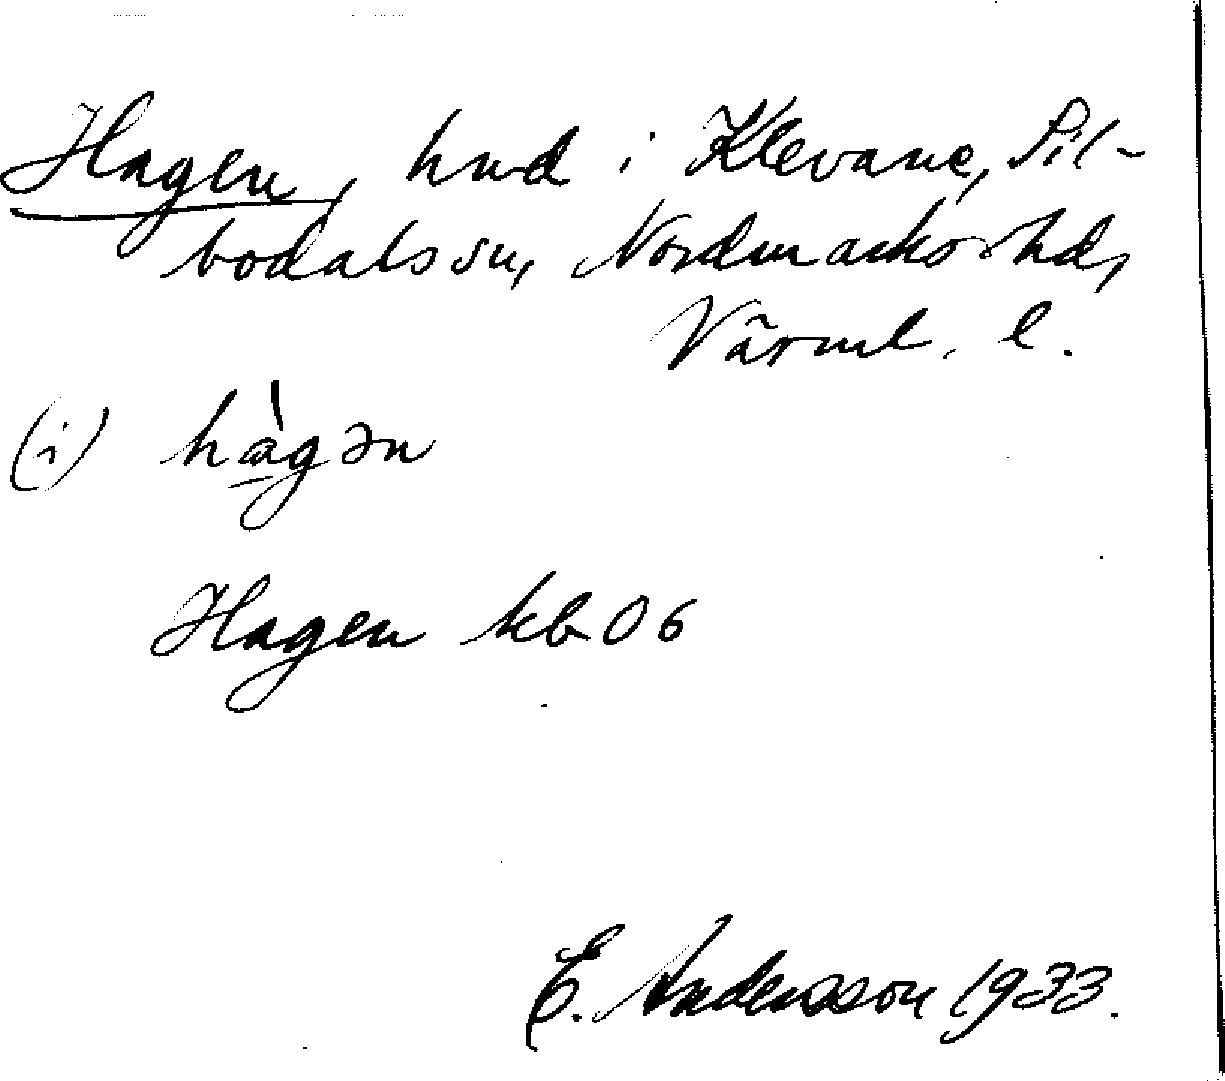 Hagen, hnd i Klevane, Sil-
bodals sn, Nordmarks hd,
Värml. l.
(i) hàgən
Hagen kb 06
E. Andersson 1933.